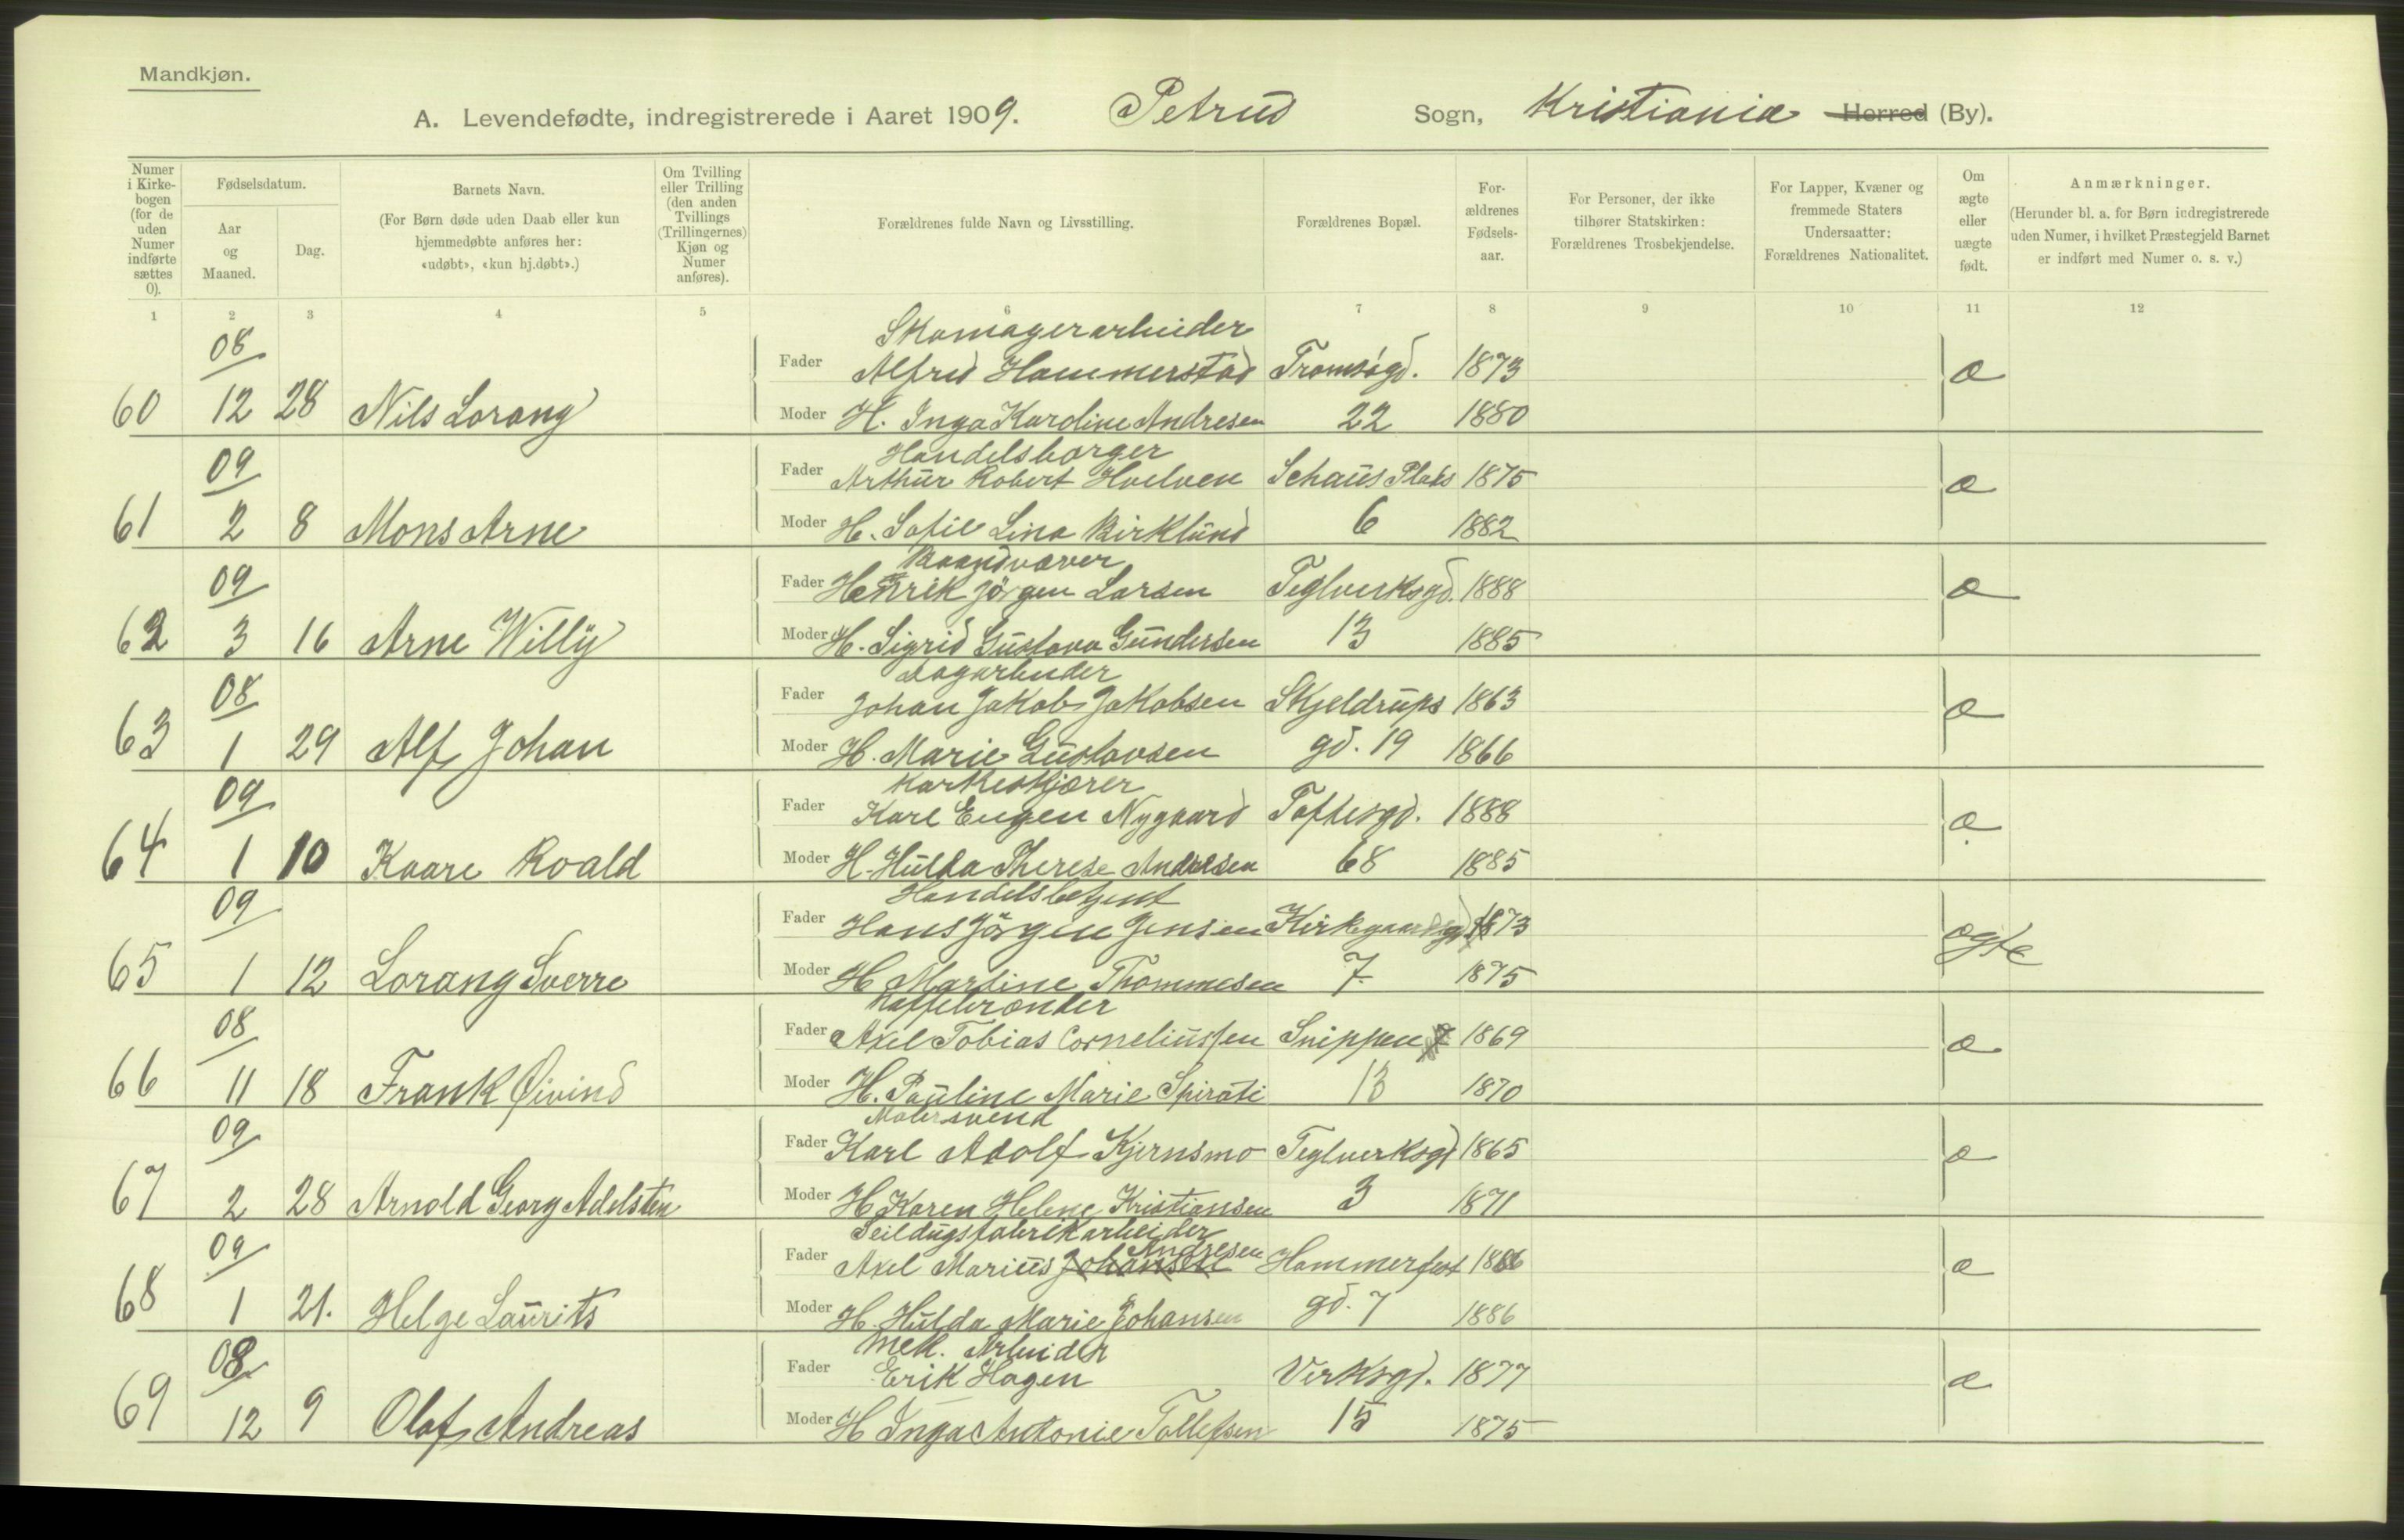 Mandkjøn.
A. Levendefødte, indregistrerede i Aaret 1909. Petrus Sogn, Kristiania Herred (By).
Numer i Kirke-bogen (for de uden Numer indførte sættes 0).
Fødselsdatum.
Aar og Maaned.
Dag.
Barnets Navn.
(For Børn døde uden Daab eller kun hjemmedøbte anføres her: «udøbt», «kun hj.døbt».)
Om Tvilling eller Trilling (den anden Tvillings (Trillingernes) Kjøn og Numer anføres).
Forældrenes fulde Navn og Livsstilling.
Forældrenes Bopæl.
For-ældrenes Fødsels-aar.
For Personer, der ikke tilhører Statskirken: Forældrenes Trosbekjendelse.
For Lapper, Kvæner og fremmede Staters Undersaatter: Forældrenes Nationalitet.
Om ægte eller uægte født.
Anmærkninger.
(Herunder bl. a. for Børn indregistrerede uden Numer, i hvilket Præstegjeld Barnet er indført med Numer o. s. v.)
1 2 3 4 5 6 7 8 9 10 11 12
08 Skomagerarbeider
Fader Alfred Hammerstad Tromsøgd. 1873 æ
60 12 28 Nils Lorang Moder H. Inga Karoline Andresen 22 1880
09 Handelsborger
Fader Arthur Robert Hoelven Schaus Plads 1875 æ
61 2 8 Mons Arne Moder H. Sofie Lina Birklund 6 1882
09 Baandvæver
Fader Henrik Jörgen Larsen Teglverksgd. 1888 æ
62 3 16 Arne Willy Moder H. Sigrid Gustava Gundersen 13 1885
08 Dagarbeider
Fader Johan Jakob Jakobsen Skjeldrups 1863 æ
63 1 29 Alf Johan Moder H. Marie Gustavsen gd. 19 1866
09 Korkeskjærer
Fader Karl Eugen Nygaard Toftesgd. 1888 æ
64 1 10 Kaare Roald Moder H. Hulda Therese Andresen 68 1885
09 Handelsbetjent
Fader Hans Jörgen Jensen Kirkegaardsgd 1873 ægte
65 1 12 Lorang Sverre Moder H Martine Thommesen 7 1875
08 Kaffebrænder
Fader Axel Tobias Corneliussen Snippen 1869 æ
66 11 18 Frank Øivind Moder H. Pauline Marie Spirati 13 1870
09 Malersvend
Fader Karl Adolf Kjernsmo Teglverksgd 1865 æ
67 2 28 Arnold Georg Adelsten Moder H Karen Helene Kristiansen 3 1871
09 Seildugsfabrikarbeider
Andresen
Fader Axel Marius Johansen Hammerfest 1886 æ
68 1 21. Helge Laurits Moder H. Hulda Marie Johansen gd. 7 1886
08 Mek. Arbeider
Fader Erik Hagen Verksgd. 1877 æ
69 12 9 Olaf Andreas Moder H Inga Antonie Tollefsen 15 1875